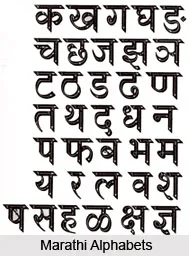 क ख ग घ ङ
च छ ज झ ञ
ट ठ ड ढ ण
त थ द ध न
प फ ब भ म
य र ल व श
ष स ह ळ क्ष ज्ञ
Marathi Alphabets